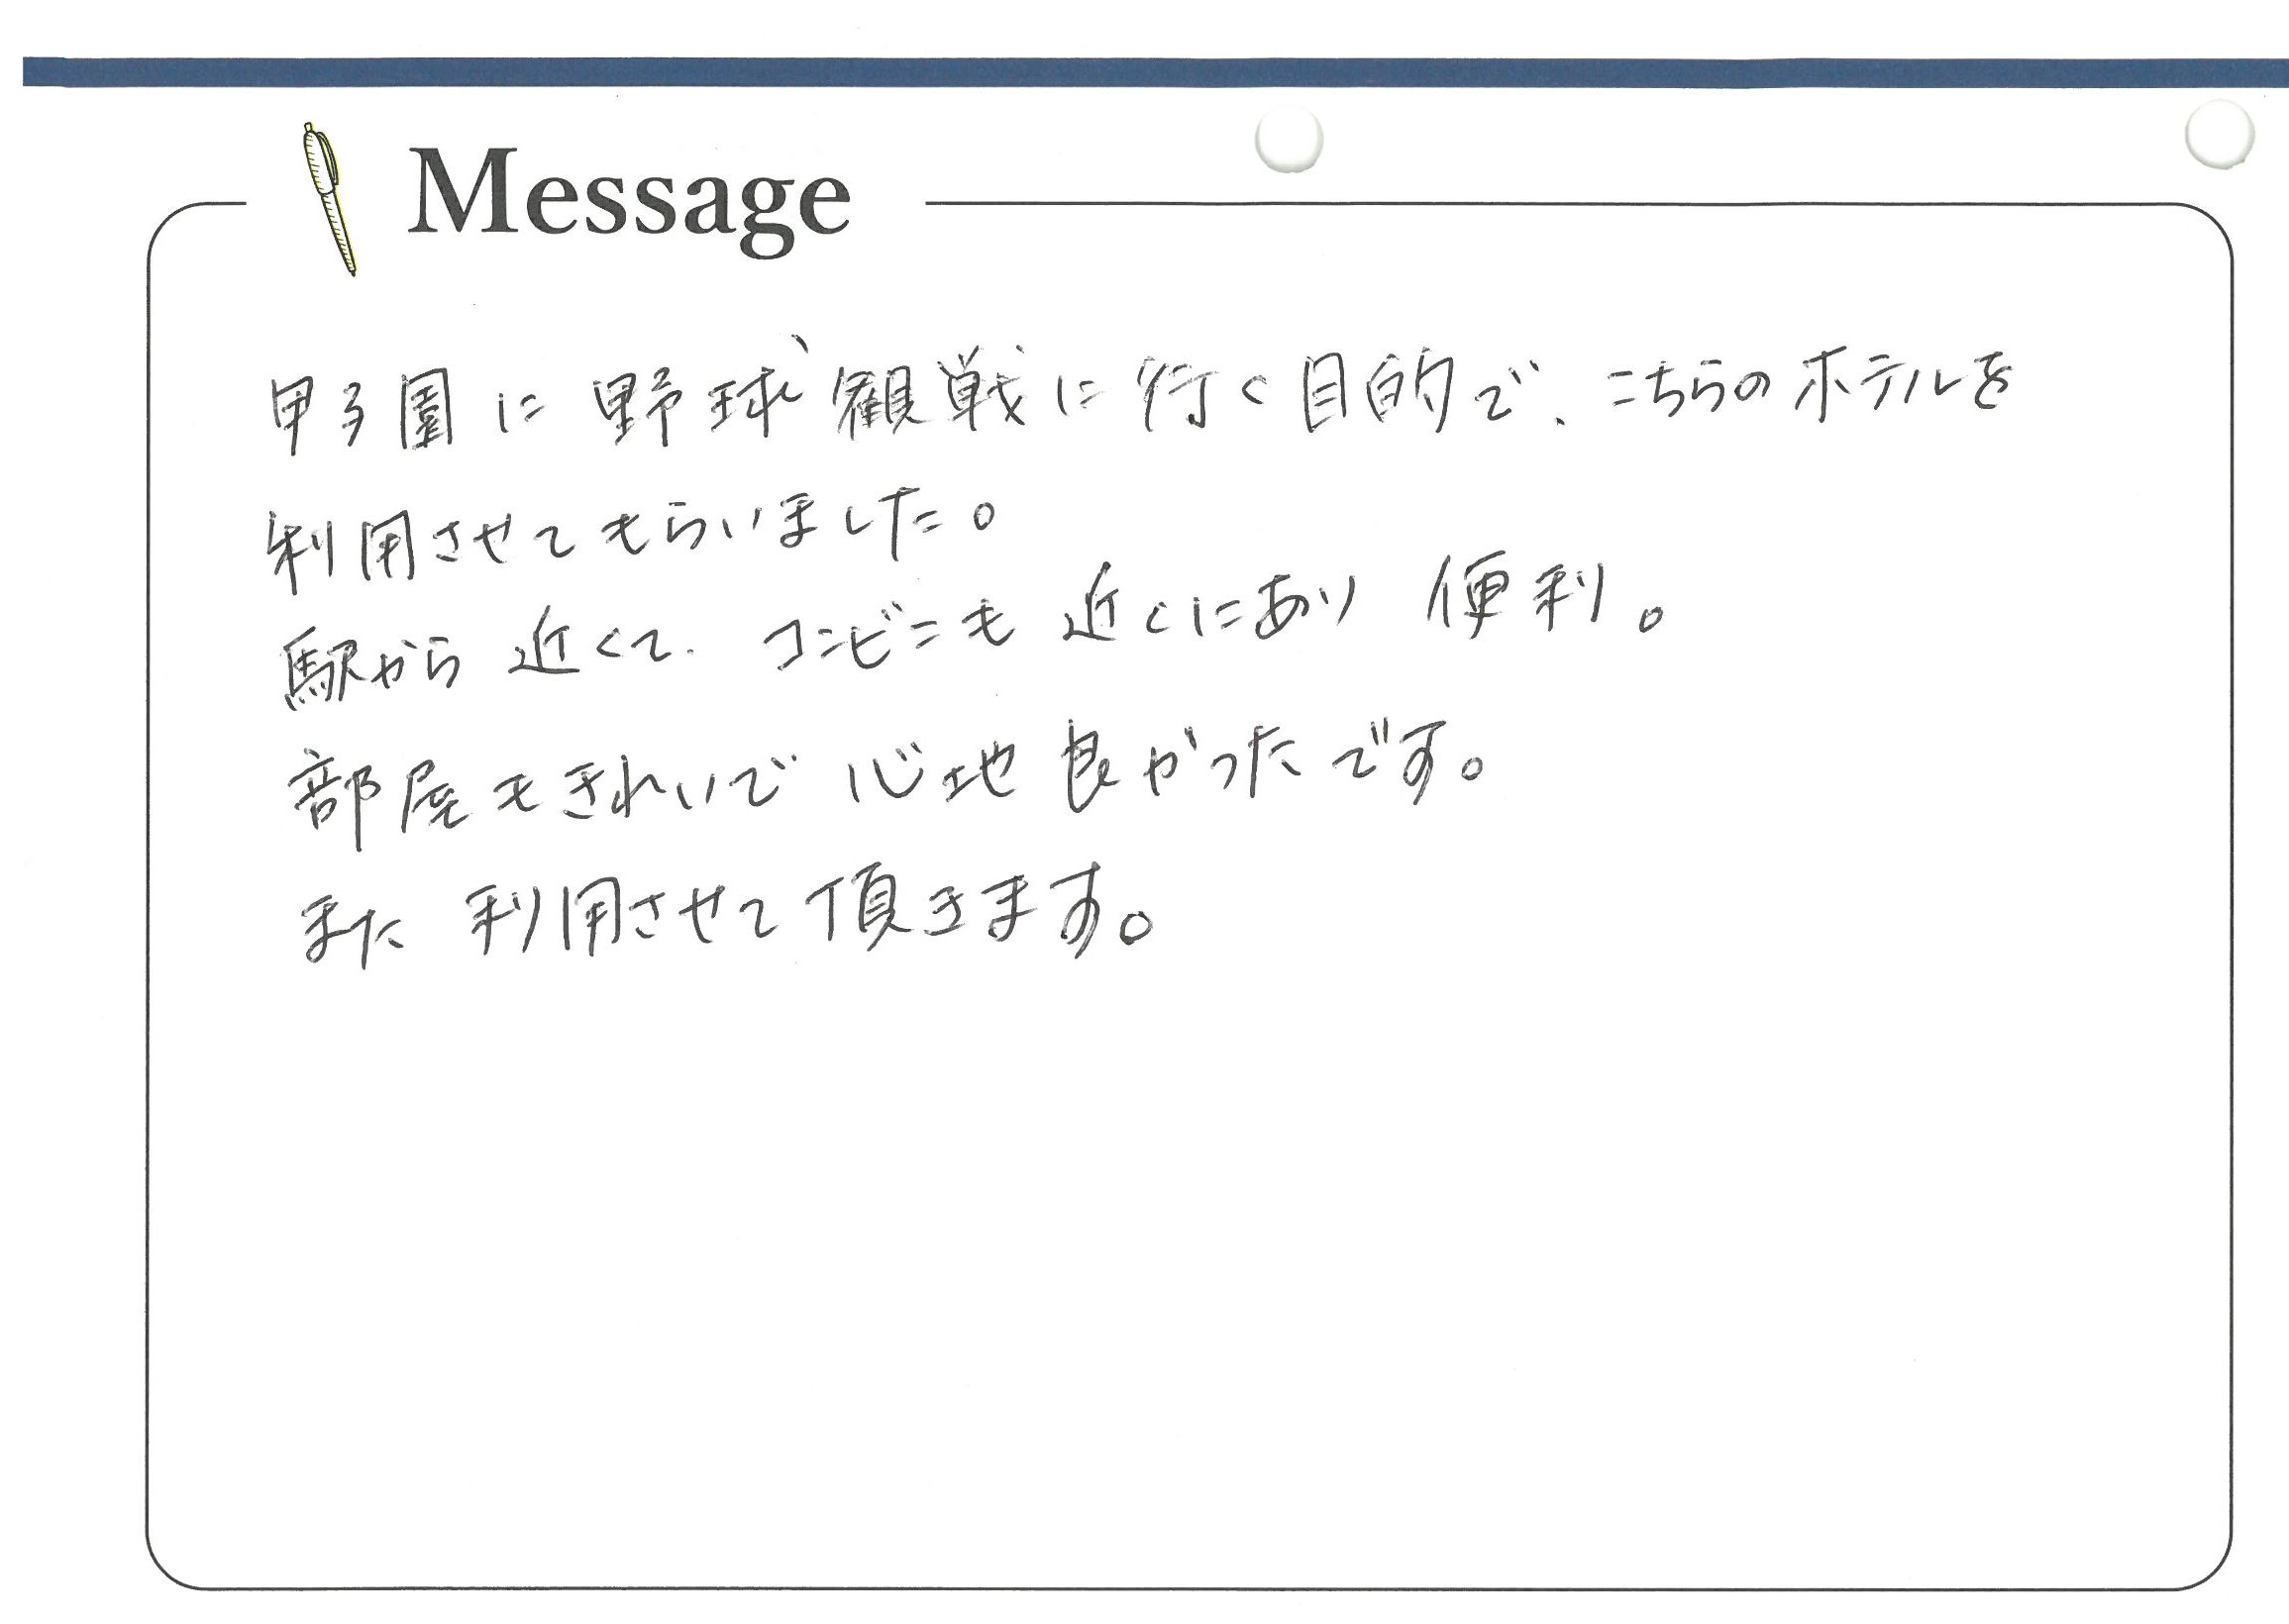 Message
甲子園に野球観戦に行く目的で、こちらのホテルを
利用させてもらいました。
駅から近くて、コンビニも近くにあり便利。
部屋もきれいで心地良かったです。
また利用させて頂きます。